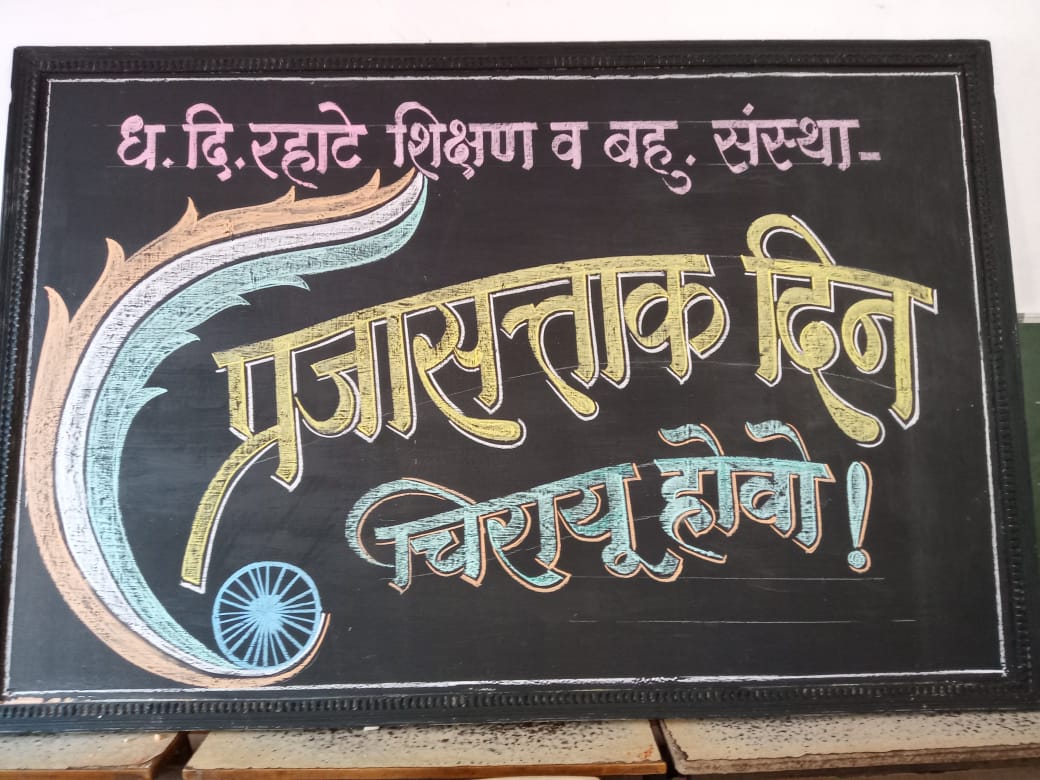 ध. दि. रहाटे शिक्षण व बहु. संस्था-
प्रजासत्ताक दिन
चिरायू होवो!